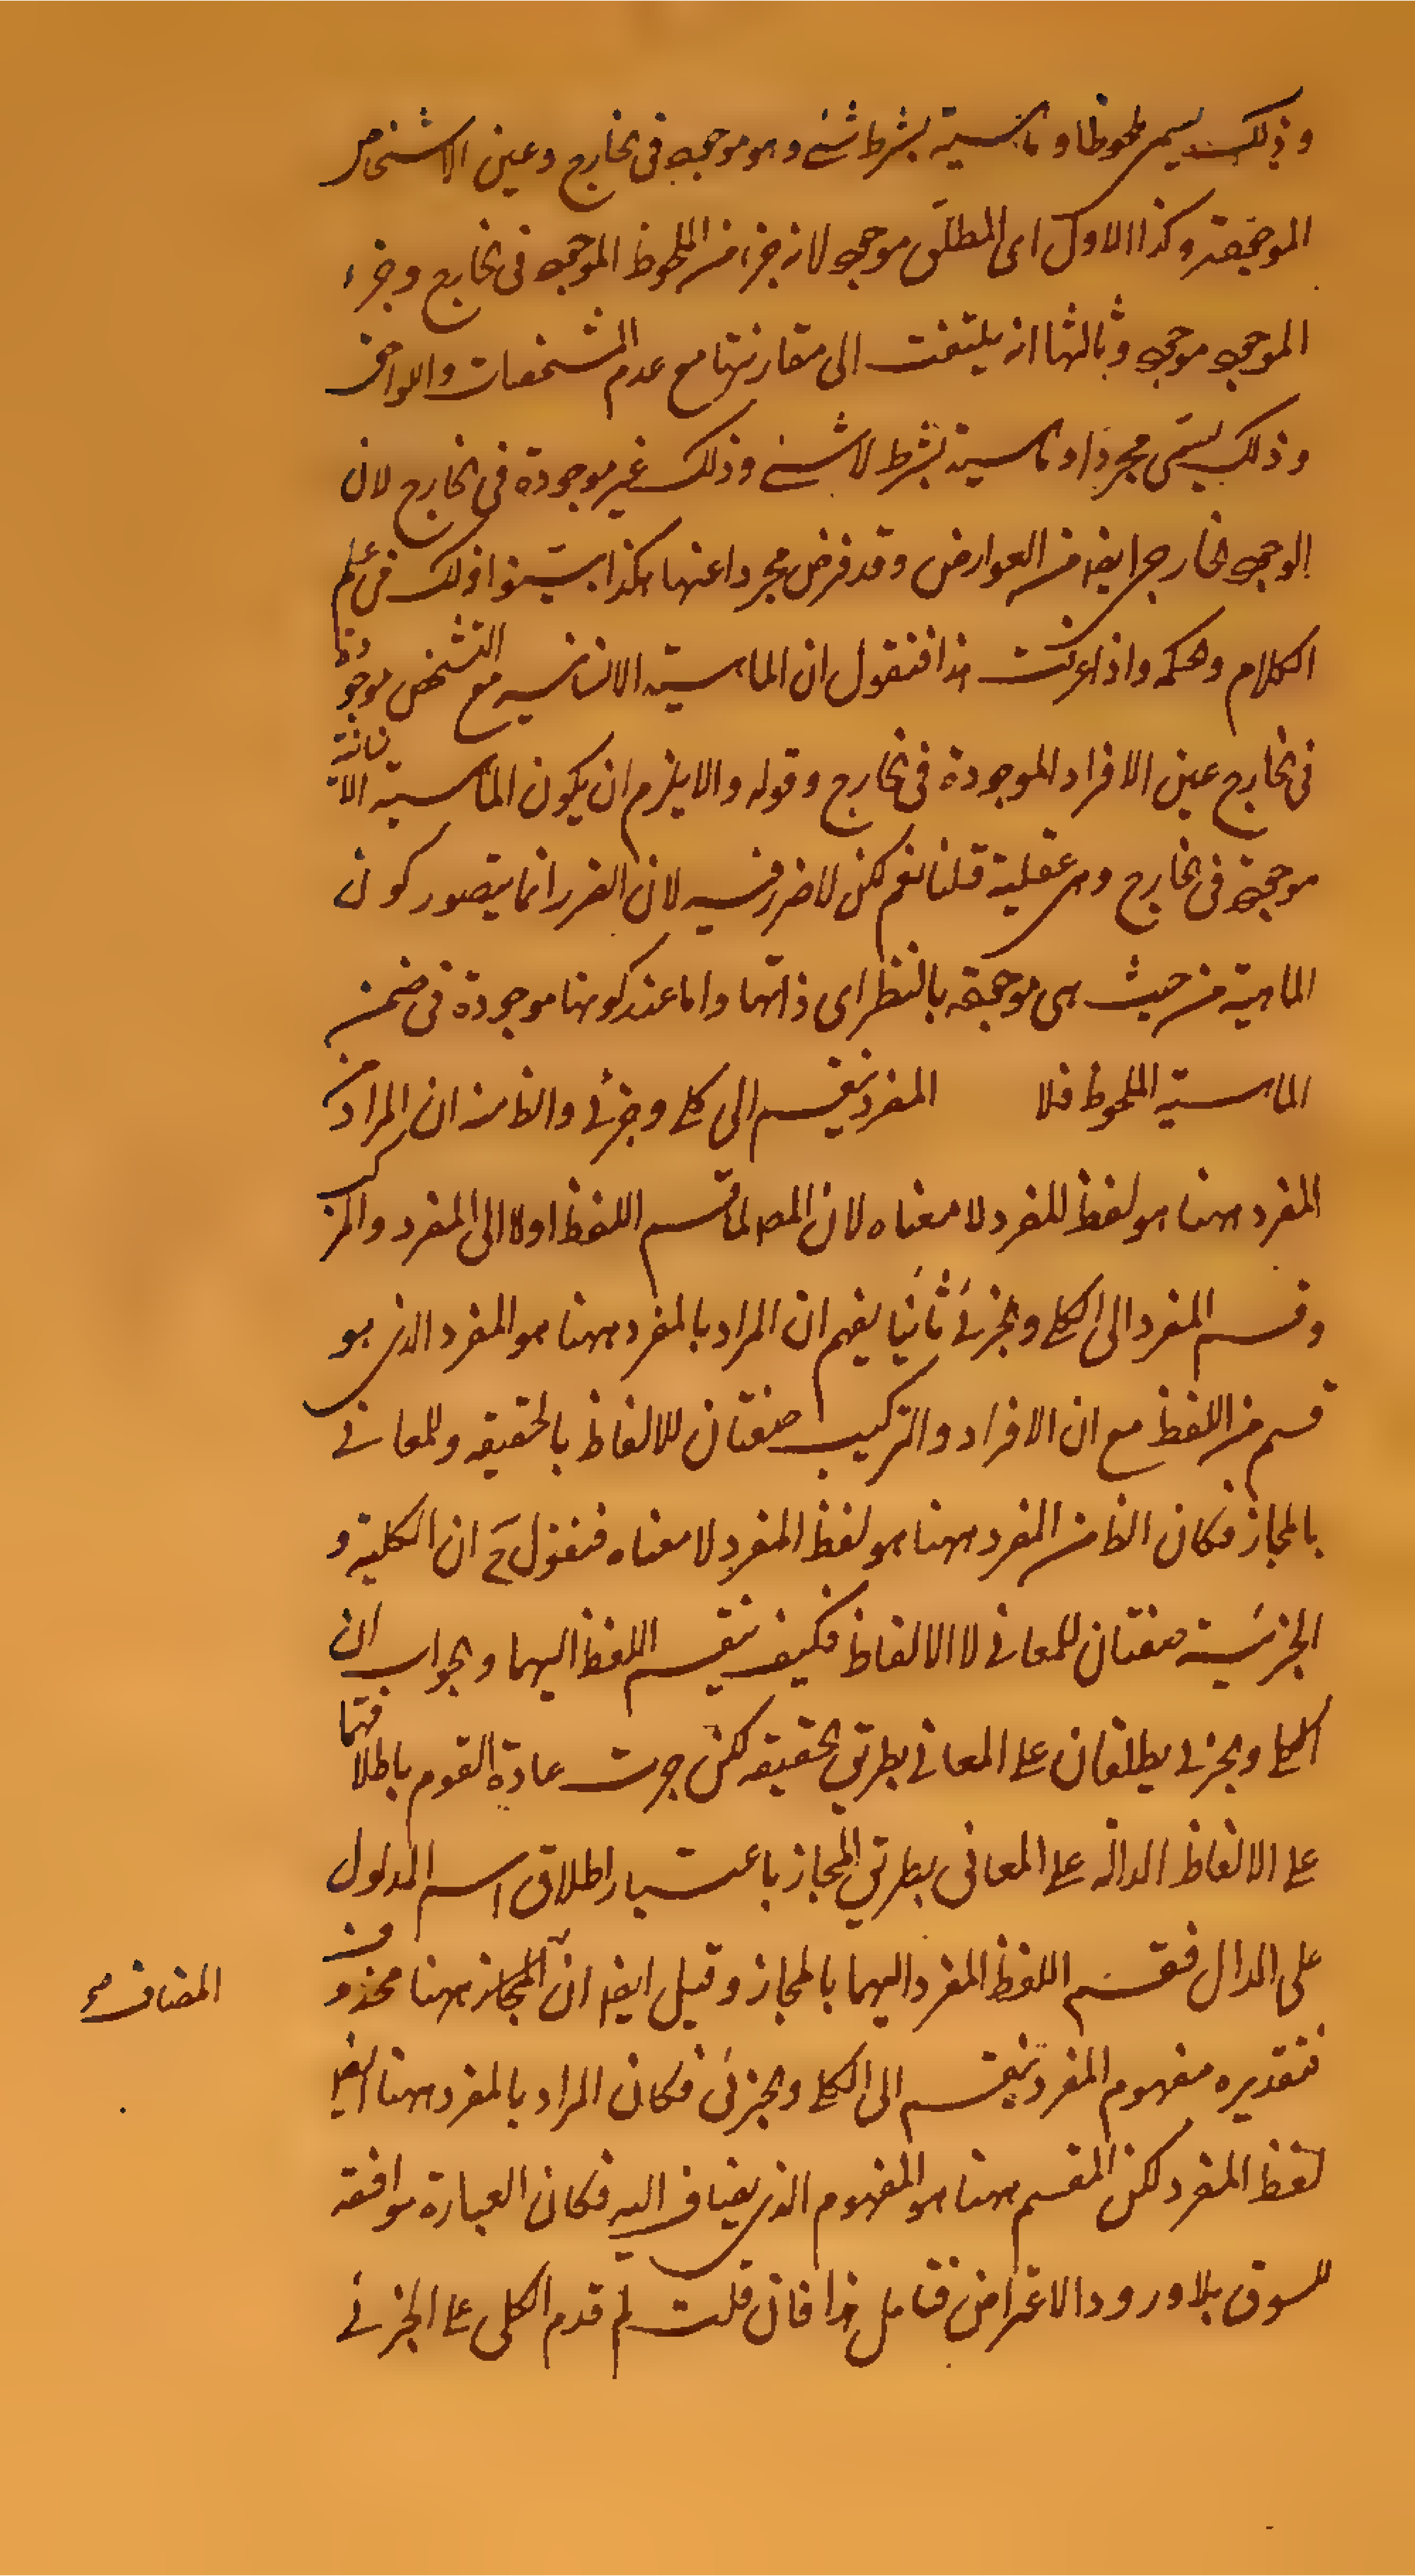 وذلك يسمى ملحوظا وماهية بشرط شئ وهو موجود فى الخارج وعين الاشخاص
الموجودة وكذا الاول اى المطلق موجود لانه جزء من الملحوظ الموجود فى الخارج وجزء
الموجود موجود وثالثها انه يلتفت الى مقارنتها مع عدم المشخصات واللواحق
وذلك يسمى مجردا وماهية بشرط لا شئ وذلك غير موجودة فى الخارج لان
الوجود الخارجى ايضا من العوارض وقد فرض مجردا عنها هكذا بينوا ذلك فى علم
الكلام والحكمة واذا عرفت هذا فنقول ان الماهية الانسانية مع التشخص موجودة
فى الخارج عين الافراد الموجودة فى الخارج وقوله والا يلزم ان يكون الماهية الانسانية
موجودة فى الخارج وهى عقلية قلنا نعم لكن لا ضرر فيه لان الضرر انما يتصور كون
الماهية من حيث هى موجودة بالنظر اى ذاتها واما عند كونها موجودة فى ضمن
الماهية الملحوظ فلا المفرد ينقسم الى كلى وجزئى والظ منه ان المراد من
المفرد ههنا هو لفظ المفرد لا معناه لان المص لما قسم اللفظ اولا الى المفرد والمركب
وقسم المفرد الى الكلى والجزئى ثانيا يفهم ان المراد بالمفرد ههنا هو المفرد الذى هو
قسم من اللفظ مع ان الافراد والتركيب صفتان للالفاظ بالحقيقه وللمعانى
بالمجاز فكان الظ من المفرد ههنا هو لفظ المفرد لا معناه فنقول ح ان الكلية و
الجزئية صفتان للمعانى لا الالفاظ فكيف ينقسم اللفظ اليهما والجواب ان
الكلى والجزئى يطلقان على المعانى بطريق الحقيقه لكن جرت عادة القوم باطلاقهما
على الالفاظ الدالة على المعانى بطريق المجاز باعتبار اطلاق اسم المدلول
على الدال فقسم اللفظ المفرد اليهما بالمجاز وقيل ايضا ان المجاز ههنا محذوف
المضاف صح
فتقديره مفهوم المفرد ينقسم الى الكلى والجزئى فكان المراد بالمفرد ههنا ايضا
لفظ المفرد لكن المقسم ههنا هو المفهوم الذى يضاف اليه فكان العبارة موافقة
للسوق بلا ورود الاعتراض فتامل هذا فان قلت لم قدم الكلى على الجزئى